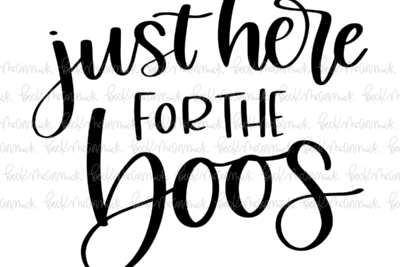 just here
FOR THE
boos